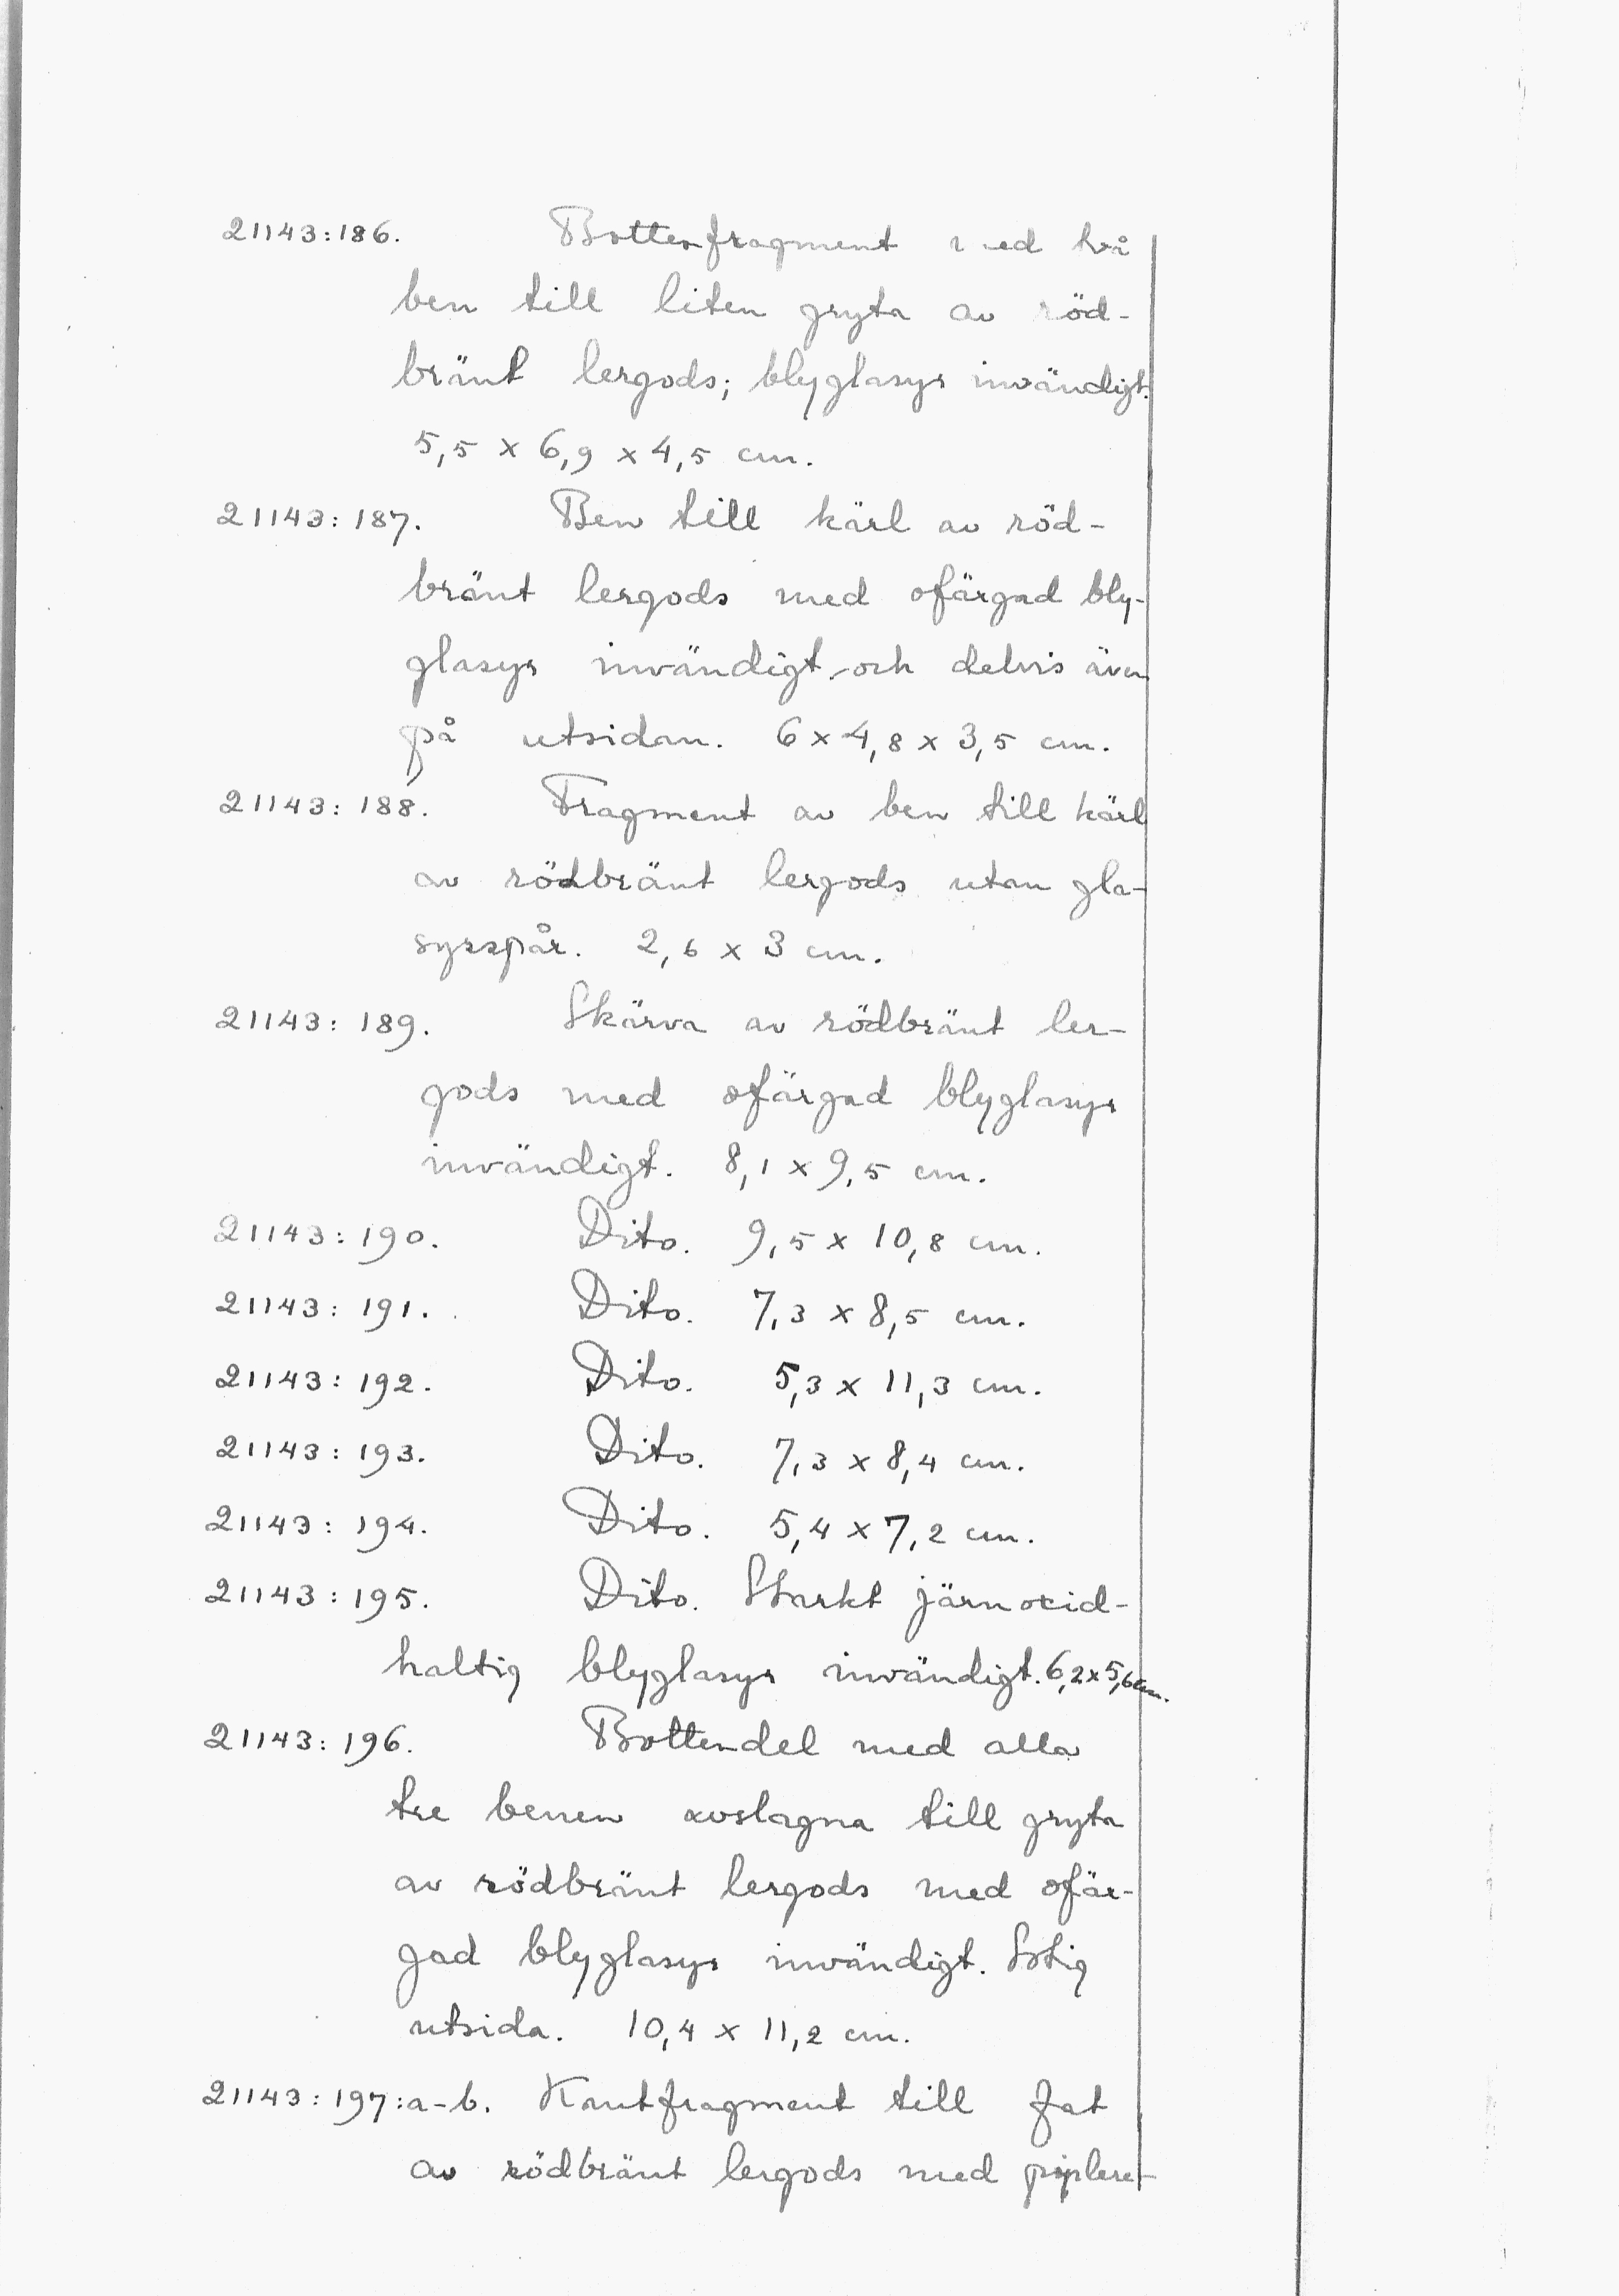 21143:186. Bottenfragment med två
ben till liten gryta av röd-
bränt lergods; blyglasyr invändigt.
5,5 x 6,9 x 4,5 cm.
21143:187. Ben till kärl av röd-
bränt lergods med ofärgad bly-
glasyr invändigt och delvis även
på utsidan. 6 x 4,8 x 3,5 cm.
21143:188. Fragment av ben till kärl
av rödbränt lergods utan gla-
syrspår. 2,6 x 3 cm.
21143:189. Skärva av rödbränt ler-
gods med ofärgad blyglasyr
invändigt. 8,1 x 9,5 cm.
21143:190. Dito. 9,5 x 10,8 cm.
21143:191. Dito. 7,3 x 8,5 cm.
21143:192. Dito. 5,3 x 11,3 cm.
21143:193. Dito. 7,3 x 8,4 cm.
21143:194. Dito. 5,4 x 7,2 cm.
21143:195. Dito. Starkt järnoxid-
haltig blyglasyr invändigt. 6,2 x 5,6 cm.
21143:196. Bottendel med alla
tre benen avslagna till gryta
av rödbränt lergods med ofär-
gad blyglasyr invändigt. Sotig
utsida. 10,4 x 11,2 cm.
21143:197:a-b. Kantfragment till fat
av rödbränt lergods med piplere-